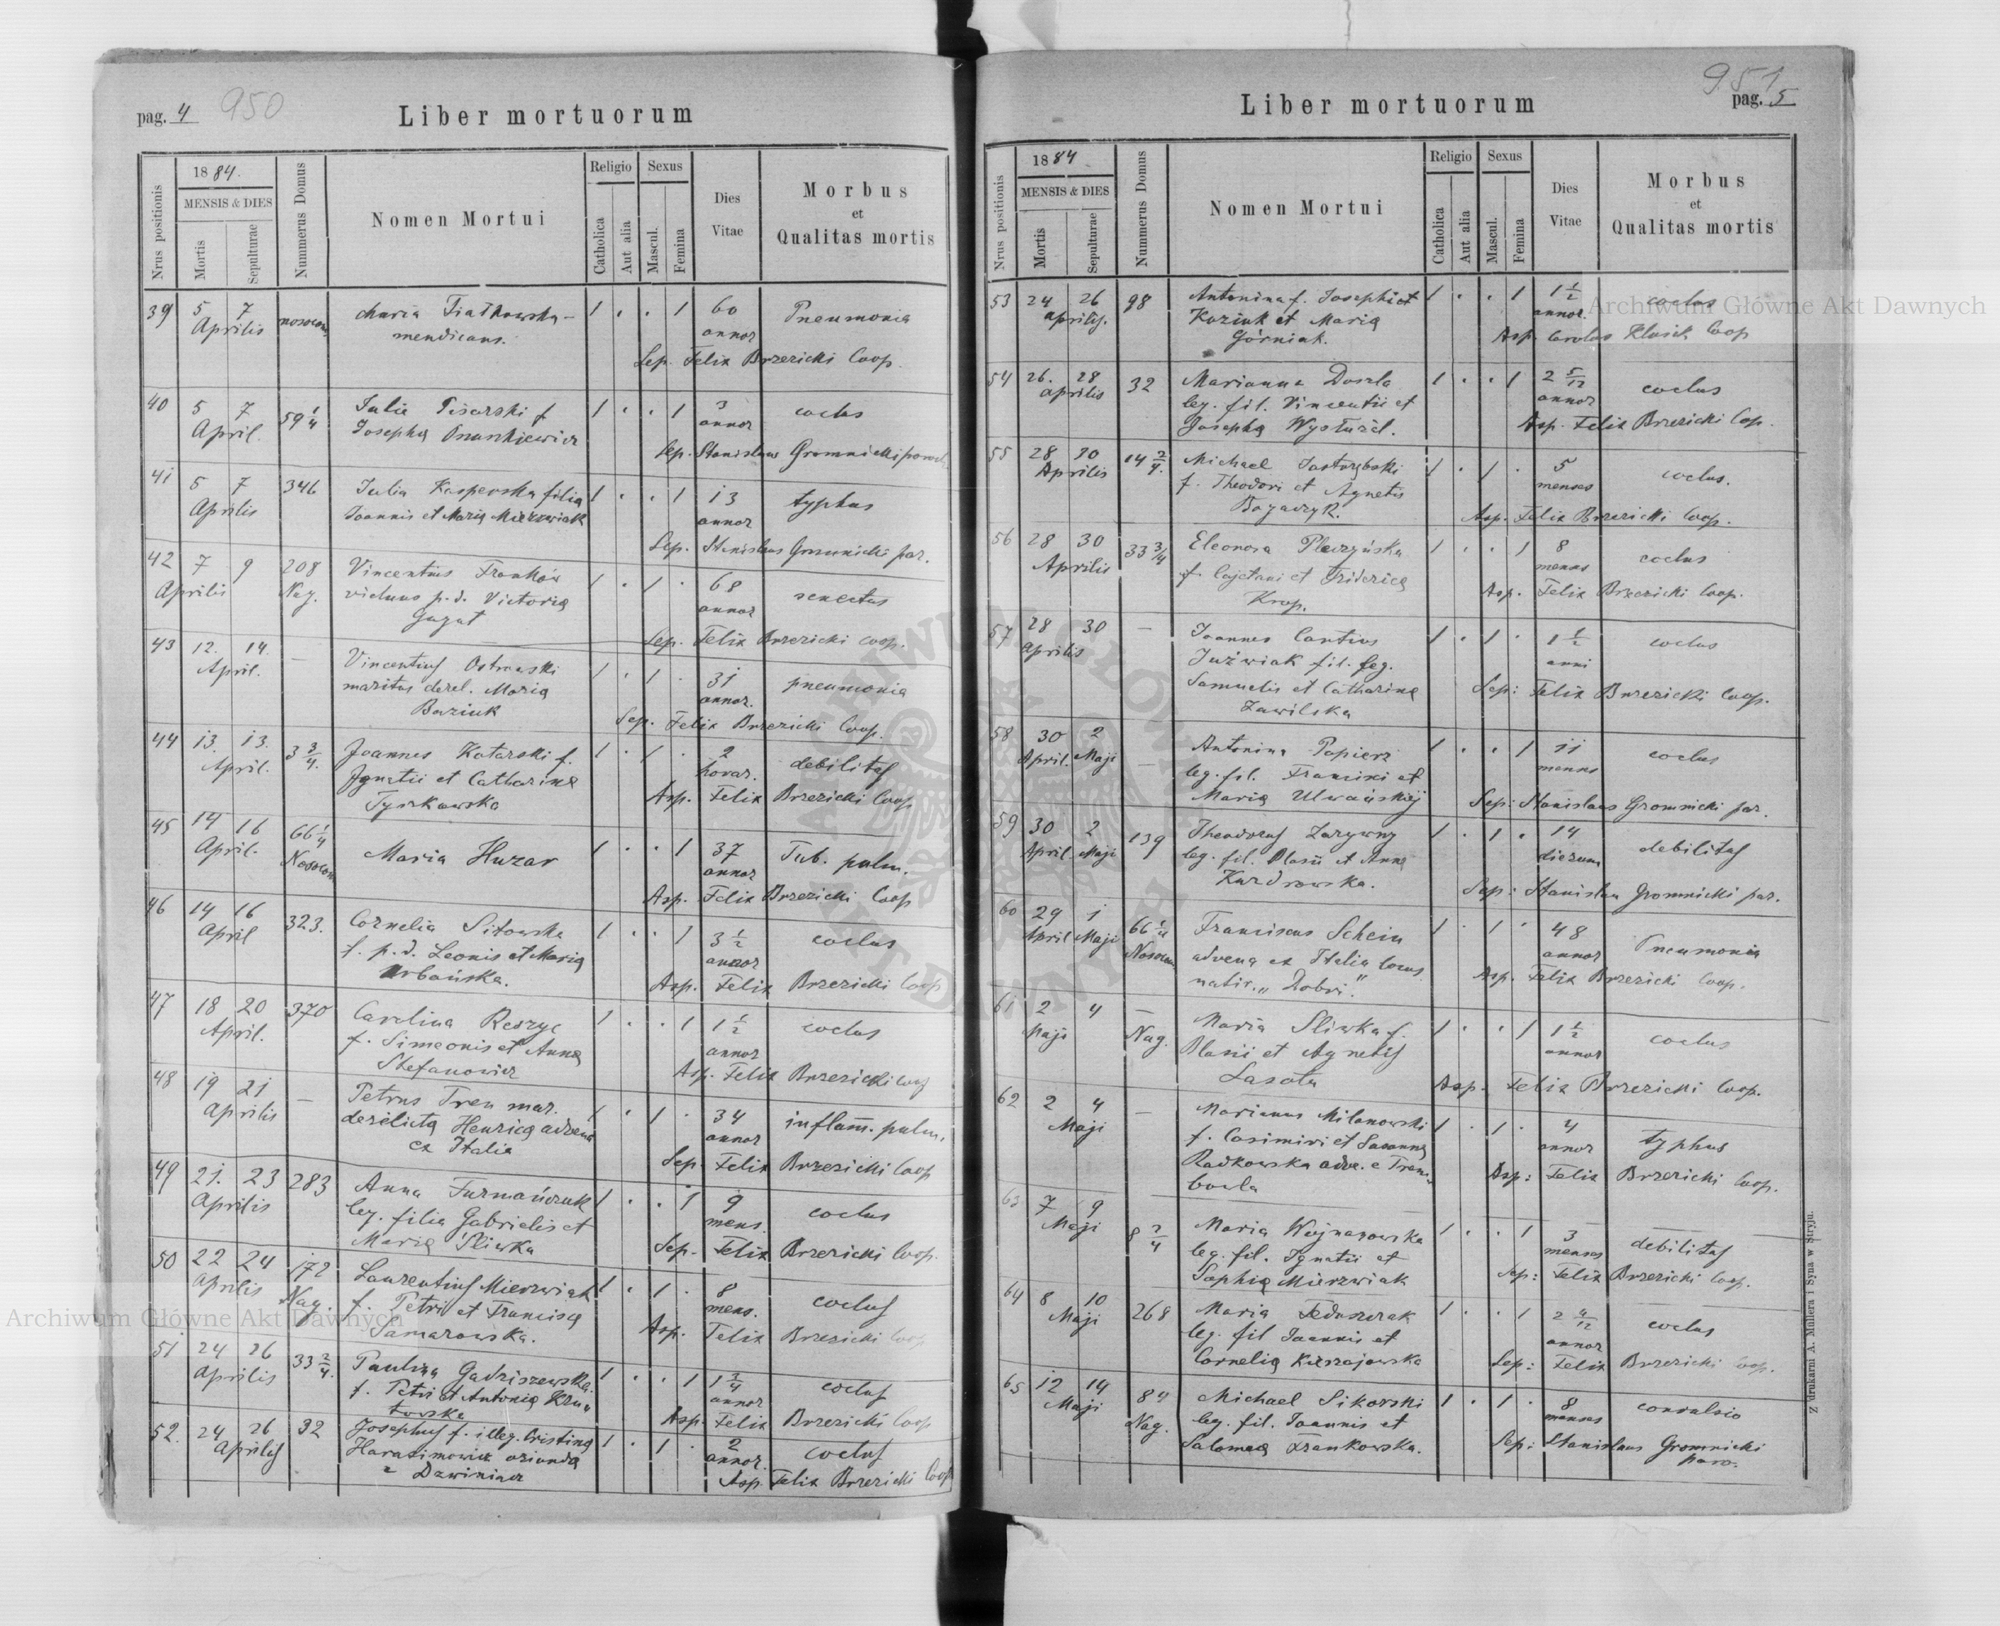 pag. 4 950
Liber mortuorum
Nrus positionis
1884.
MENSIS & DIES
Mortis
Sepulturae
Nummerus Domus
Nomen Mortui
Religio
Catholica
Aut alia
Sexus
Mascul.
Femina
Dies
Vitae
Morbus
et
Qualitas mortis
39 5 7 Aprilis nosocom. Maria Fiałkowska 1 . . 1 60 annor Pneumonia
mendicans.
Sep. Felix Brzezicki Coop.
40 5 7 April. 59 1/4 Julia Pisarski f. 1 . . 1 3 annor coclus
Josepha
Sep. Stanislaus Gromnicki paroch
41 5 7 Aprilis 346 Julia Kasperska filia 1 . . 1 13 annor typhus
Joannis et Maria Mierzwiak
Sep. Stanislaus Gromnicki par.
42 7 9 Aprilis 208 Nag. Vincentius Franków 1 . 1 . 68 annor senectus
viduus p. d. Victoria
Gagat
Sep. Felix Brzezicki coop.
43 12. 14. April. — Vincentius Ostrowski 1 . 1 . 31 annor. pneumonia
maritus derel. Maria
Baziuk
Sep. Felix Brzezicki Coop.
44 13. 13. April. 3 3/4. Joannes Kotarski f. 1 . 1 . 2 horar. debilitas
Ignatii et Catharina
Tyszkowska
Asp. Felix Brzezicki Coop
45 14 16 April. 66 1/4 Nosocom Maria Huzar 1 . . 1 37 annor Tub. pulm.
Asp. Felix Brzezicki Coop
46 14 16 April 323. Cornelia Sitowska 1 . . 1 3 1/2 annor coclus
f. p. d. Leonis et Maria
Urbańska.
Asp. Felix Brzezicki Coop
47 18 20 April. 370 Carolina Reszyc 1 . . 1 1 1/2 annor coclus
f. Simeonis et Anna
Stefanowicz
Asp. Felix Brzezicki coop
48 19 21 Aprilis — Petrus Tren mar. 1 . 1 . 34 annor inflam. pulm.
derelicta Henrica advena
ex Italia
Sep. Felix Brzezicki Coop
49 21. 23 Aprilis 283 Anna Furmańczuk 1 . . 1 9 mens. coclus
leg. filia Gabrielis et
Maria Śliwka
Sep. Felix Brzezicki Coop.
50 22 24 Aprilis 172 Nag. Laurentius Mierzwiak 1 . 1 . 8 mens. coclus
f. Petri et Francisca
Samarowska.
Asp. Felix Brzezicki Coop
51 24 26 Aprilis 33 2/4. Paulina Gadziszewska. 1 . . 1 annor coclus
f. Petri et Antonia
Asp. Felix Brzezicki Coop
52. 24 26 Aprilis 32 Josephus f. illeg. Cristina 1 . 1 . 2 annor. coclus
Harasimowicz oriunda
e Dzwiniacz
Asp. Felix Brzezicki Coop
951
pag. 5
Liber mortuorum
Nrus positionis
1884
MENSIS & DIES
Mortis
Sepulturae
Nummerus Domus
Nomen Mortui
Religio
Catholica
Aut alia
Sexus
Mascul.
Femina
Dies
Vitae
Morbus
et
Qualitas mortis
53 24 26 aprilis. 98 Antonina f. Josephi et 1 . . 1 1 1/2 annor. coclus
Kuziuk et Maria
Górniak.
Asp. Carolus Klusik Coop
54 26. 28 aprilis 32 Marianna Doszla 1 . . 1 2 5/12 annor coclus
leg. fil. Vincentii et
Josepha Wystużal.
Asp. Felix Brzezicki Cop.
55 28 30 Aprilis 14 2/4. Michael Jastrzębski 1 . 1 . 5 menses coclus.
f. Theodori et Agnetis
Bogaczyk.
Asp. Felix Brzezicki Coop.
56 28 30 Aprilis 33 3/4 Eleonora Pleczyńska 1 . . 1 8 menses coclus
f. Cajetani et Friderica
Krop.
Asp. Felix Brzezicki Coop.
57 28 30 Aprilis — Joannes Cantius 1 . 1 . 1 1/2 anni coclus
Juźwiak fil. leg.
Samuelis et Catharina
Zawilska
Sep: Felix Brzezicki Coop.
58 30 April. 2 Maji — Antonina Papierz 1 . . 1 11 menses coclus
leg. fil. Francisci et
Maria Ulwańskiej
Sep: Stanislaus Gromnicki par.
59 30 April 2 Maji 139 Theodorus Zarywny 1 . 1 . 14 dierum debilitas
leg. fil. Blasii et Anna
Kurdrowska.
Sep: Stanislau Gromnicki par.
60 29 April 1 Maji 66 1/4 Nosocom Franciscus Schein 1 . 1 . 48 annor Pneumonia
advena ex Italia locus
nativ. „Dobri".
Asp. Felix Brzezicki Coop.
61 2 4 Maji — Nag. Maria Sliwka f. 1 . . 1 1 1/2 annor coclus
Blasii et Agnetis
Lasota
Asp. Felix Brzezicki Coop.
62 2 4 Maji — Marianus Milanowski 1 . 1 . 4 annor typhus
f. Casimiri et Susanna
Radkowska adve. e Trem
bowla
Asp: Felix Brzezicki Coop.
63 7 9 Maji 8 2/4 Maria Wojnarowska 1 . . 1 3 menses debilitas
leg. fil. Ignatii et
Sophia Mierzwiak
Sep: Felix Brzezicki Coop.
64 8 10 Maji 268 Maria Feduszczak 1 . . 1 2 4/12 annor coclus
leg. fil Joannis et
Cornelia Kieszajowska
Sep: Felix Brzezicki Coop.
65 12 14 Maji 84 Nag. Michael Sikorski 1 . 1 . 8 menses convulsio
leg. fil. Joannis et
Salomea Frankowska.
Sep: Stanislaus Gromnicki
paro.
Z drukarni A. Müllera i Syna w Stryju.
Archiwum Główne Akt Dawnych
Archiwum Główne Akt Dawnych
ARCHIWUM GŁÓWNE AKT DAWNYCH